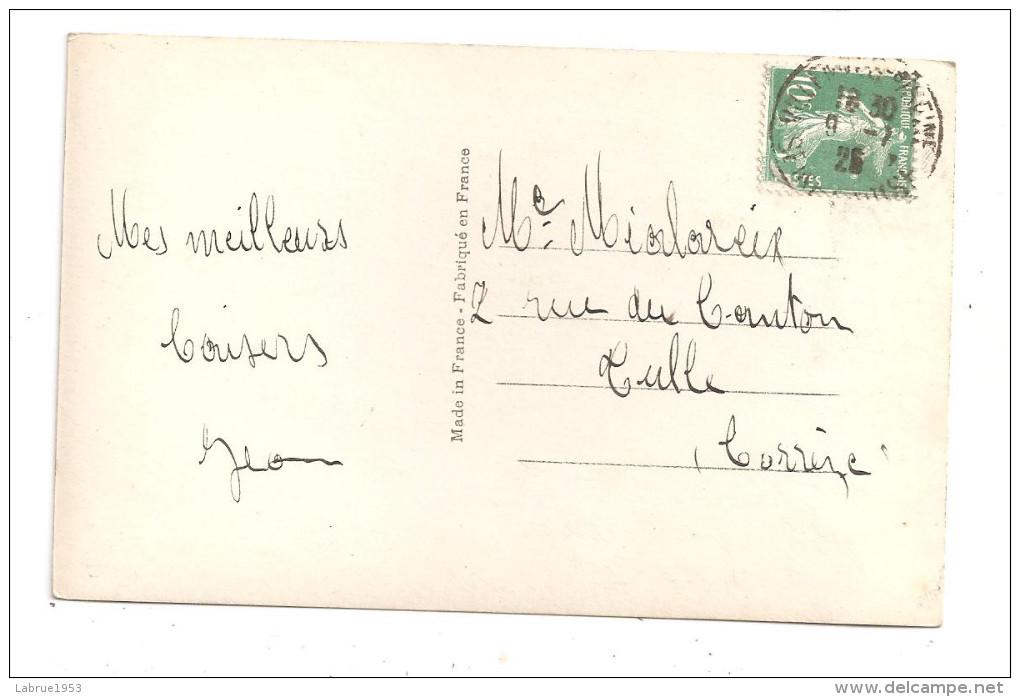 Mes meilleurs
baisers
Jean
Made in France - Fabriqué en France
Me Mialareix
2 rue du Canton
Tulle
(Corrèze)
10
POSTES
18 30
9 -1
25
Labrue1953
www.delcampe.net